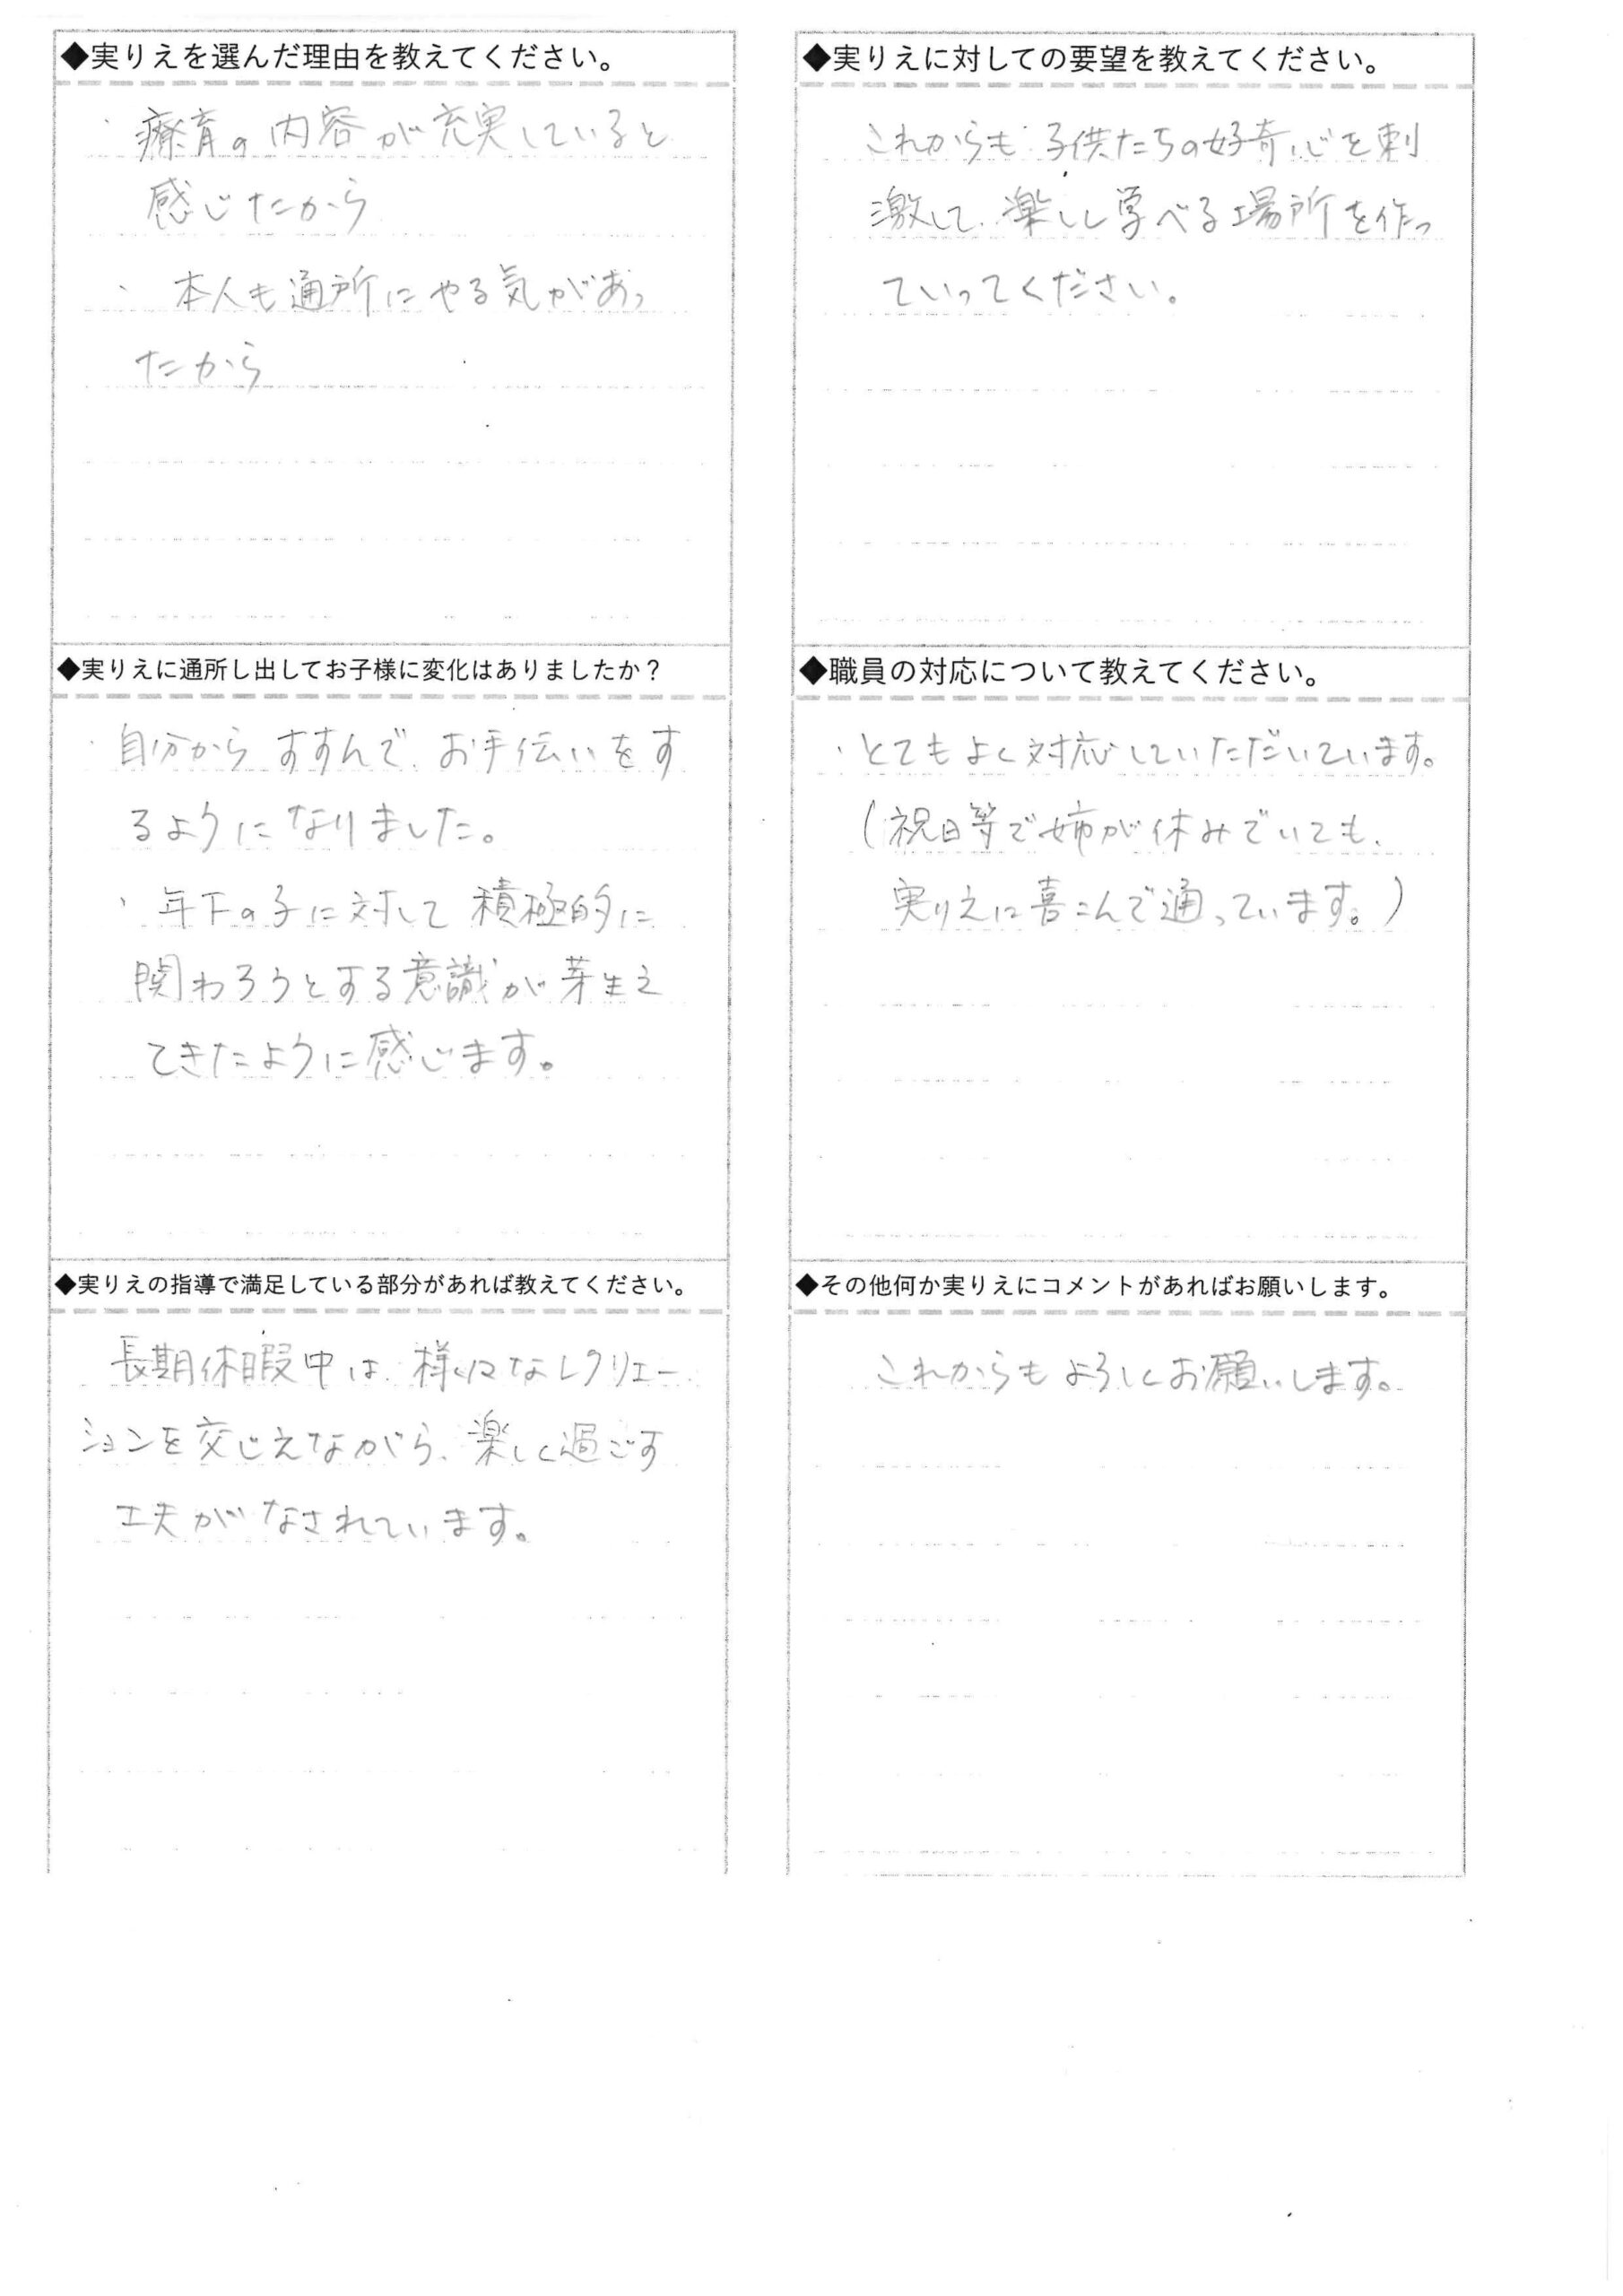 ◆実りえを選んだ理由を教えてください。
・療育の内容が充実していると
感じたから
・本人も通所にやる気があっ
たから
◆実りえに通所し出してお子様に変化はありましたか？
・自分からすすんで、お手伝いをす
るようになりました。
・年下の子に対して積極的に
関わろうとする意識が芽生え
てきたように感じます。
◆実りえの指導で満足している部分があれば教えてください。
長期休暇中は、様々なレクリェー
ションを交じえながら、楽しく過ごす
工夫がなされています。
◆実りえに対しての要望を教えてください。
これからも子供たちの好奇心を刺
激して、楽しく学べる場所を作っ
ていってください。
◆職員の対応について教えてください。
・とてもよく対応していただいています。
(祝日等で姉が休みでいても、
実りえに喜こんで通っています。)
◆その他何か実りえにコメントがあればお願いします。
これからもよろしくお願いします。